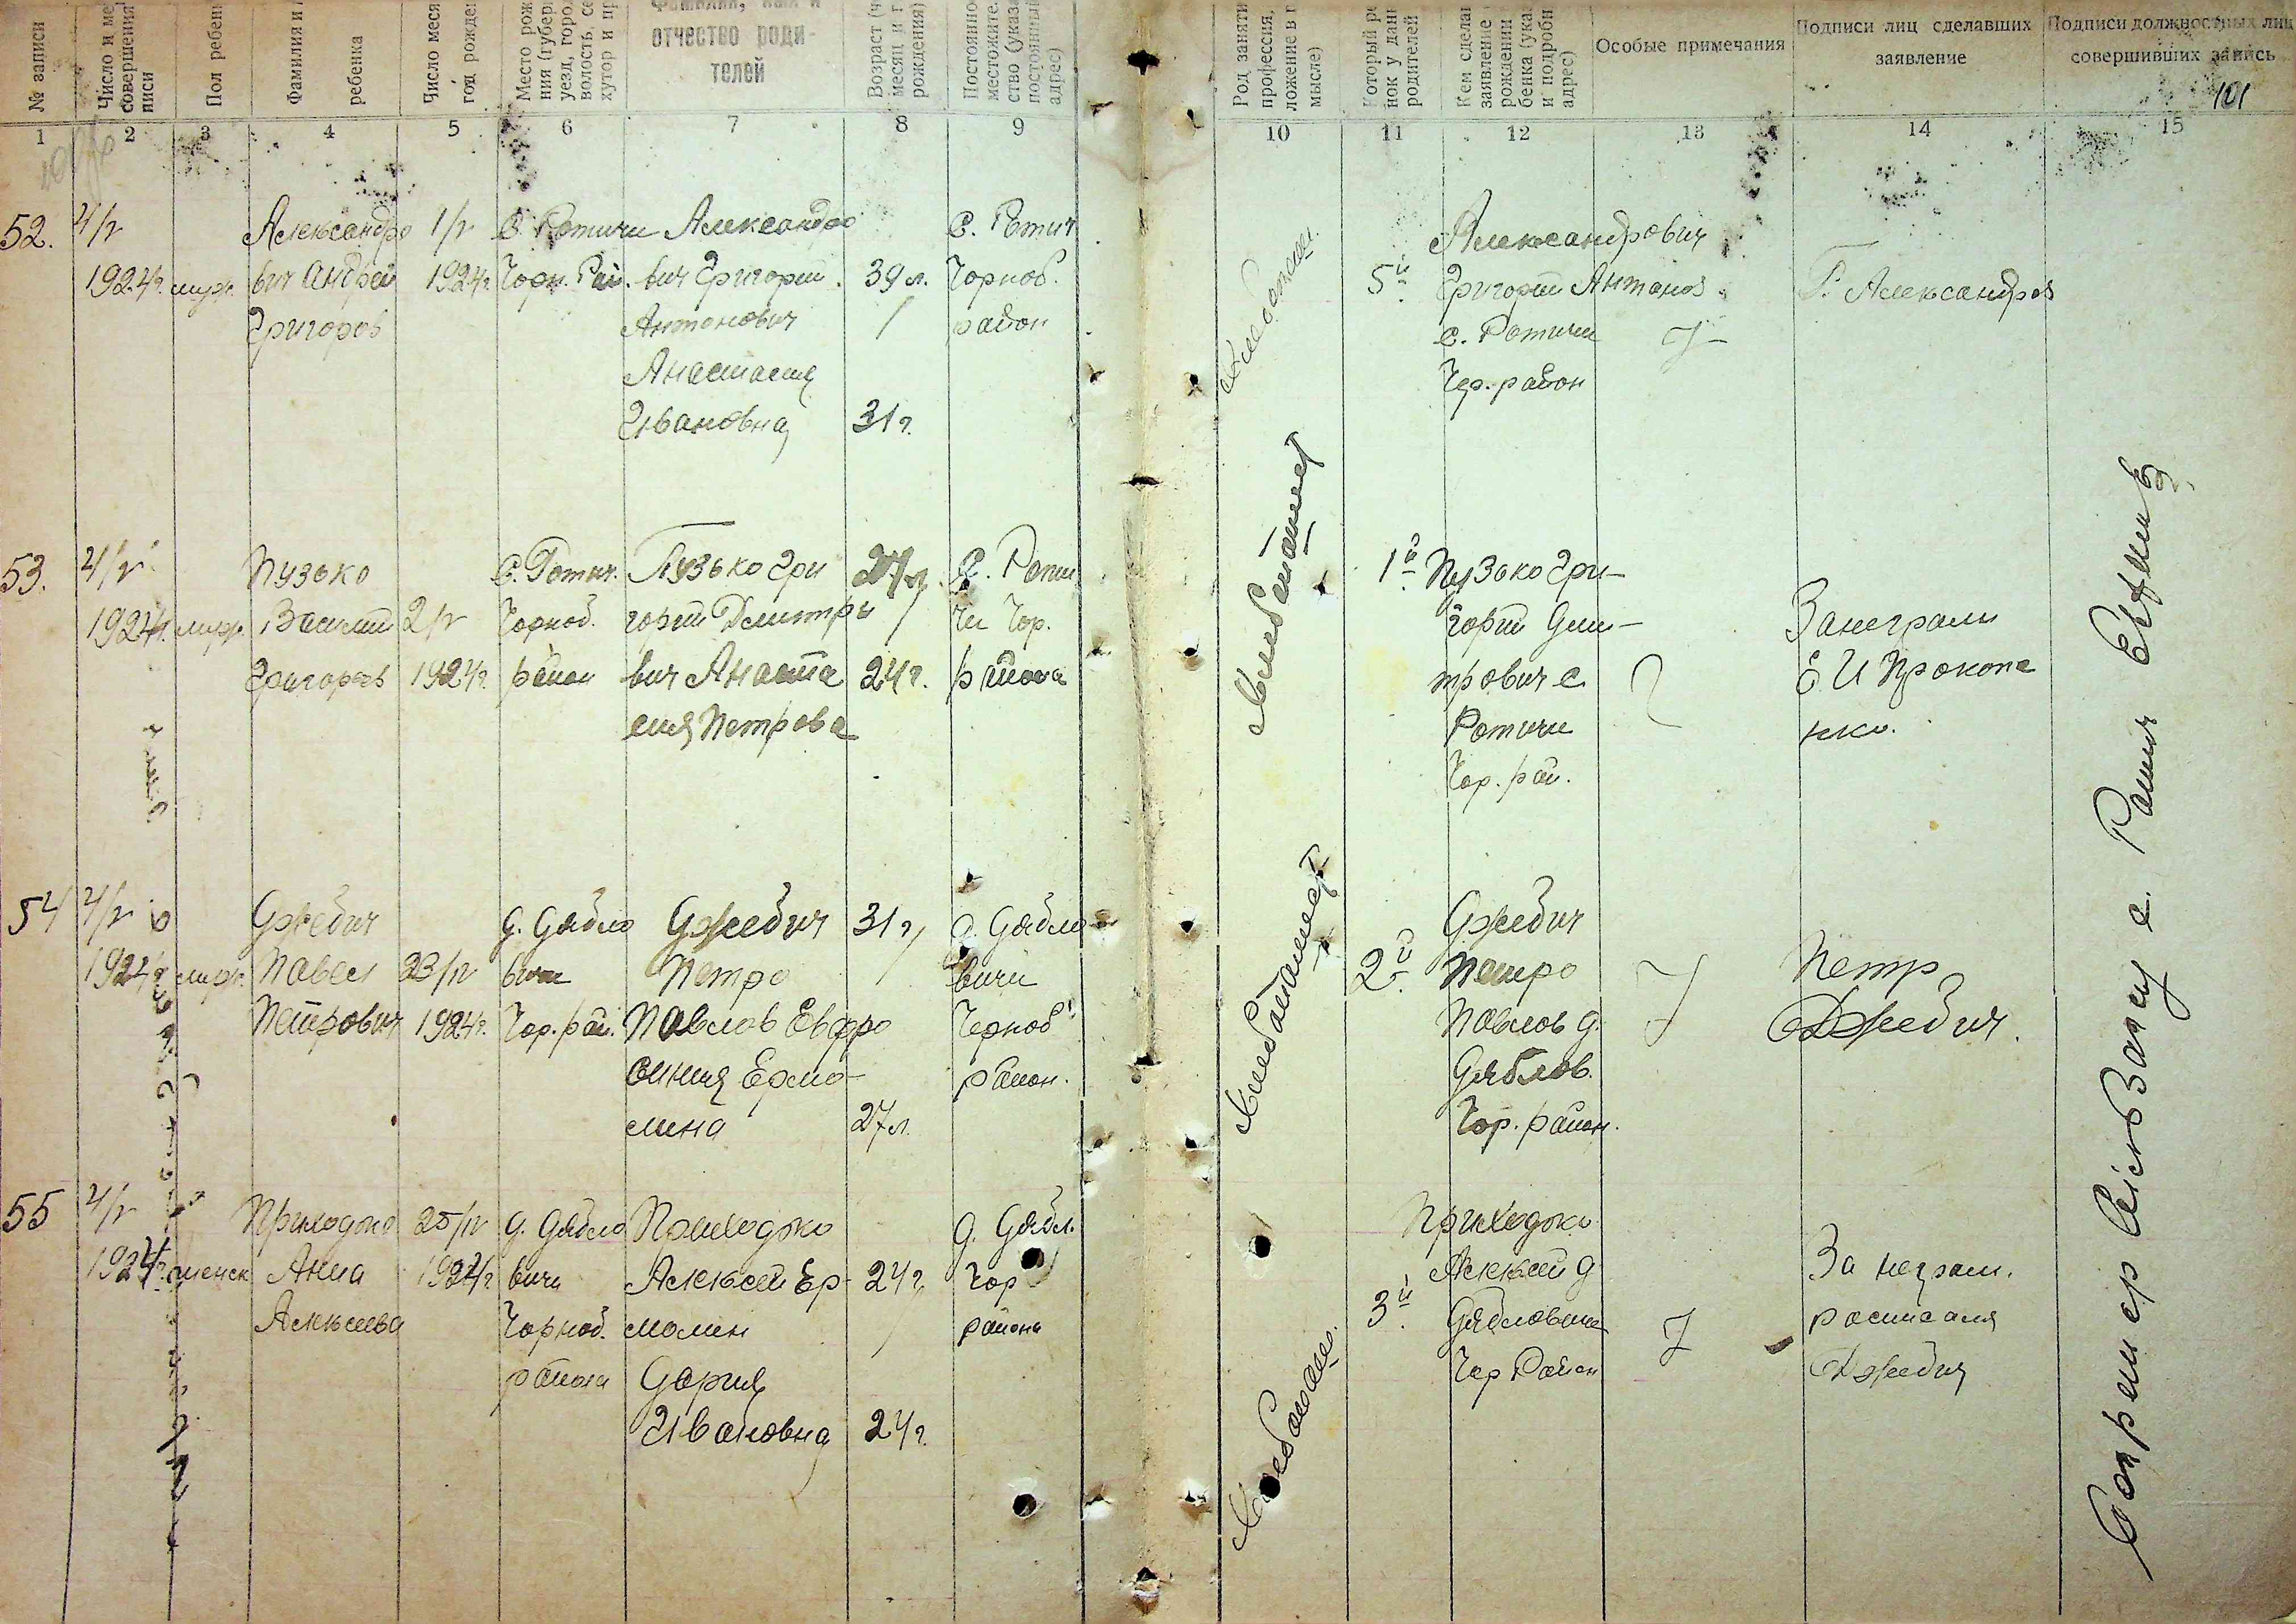 № записи
Число и ме
совершения
писи
Пол ребен
Фамилия и
ребенка
Число меся
год рожде
Место рож
ния (губер
уезд, горо
волость, се
хутор и пр
отчество роди-
телей
Возраст (ч
месяц и г
рождения)
Постоянно
местожите
ство (указ
постоянный
адрес)
Род заняти
профессия,
ложение в п
мысле)
Который ре
нок у дан
родителей
Кем сдела
заявление
рождении
бенка (ука
и подробн
адрес)
Особые примечания
Подписи лиц сделавших
заявление
Подписи должностных лиц
совершивших запись
101
1 2 3 4 5 6 7 8 9 10 11 12 13 14 15
52.
4/IV
1924г.
муж.
Александро
вич Андрей
Григоров
1/IV
1924г.
С. Ротичи
Чорн. Рай.
Александро
вич Григорий
Антонович
Анастасия
Ивановна
39 л.
31 г.
С. Ротич
Чорноб.
район
Хлебопаш.
5й
Александрович
Григорий Антонов
с. Ротичи
Чер. район
Г. Александров
53.
4/IV
1924г.
муж.
Пузько
Василий
Григорьев
2/IV
1924г.
С. Ротич.
Чорноб.
район
Пузько Гри
горий Дмитри
вич Анаста
сия Петрова
24 г.
С. Роти
чи Чор.
района
Хлебопашест
1й
Пузько Гри-
горий Дми-
трович с
Ротичи
Чор. рай.
Занеграм
Е И Прокопе
нко.
54
4/IV
1924г.
муж.
Джебич
Павел
Петрович
23/IV
1924г.
д. Дябло
вичи
Чор. рай.
Джебич
Петро
Павлов Евфро
синия Ермо-
лина
31 г.
27 л.
д. Дябло
вичи
Черноб
район.
Хлебопашест
2й
Джебич
Петро
Павлов д.
Дяблов.
Чор. район.
Петр
Джебич.
55
4/IV
1924г.
женск
Приходько
Анна
Алексеева
25/IV
1924г.
д. Дябло
вичи
Чорноб.
района
Приходько
Алексей Ер-
молин
Дария
Ивановна
24 г.
24 г.
д. Дябл.
Чор
района
Хлебопаш.
3й
Приходько
Алексей д
Дябловичи
Чер Район
За неграм.
росписался
Джебич